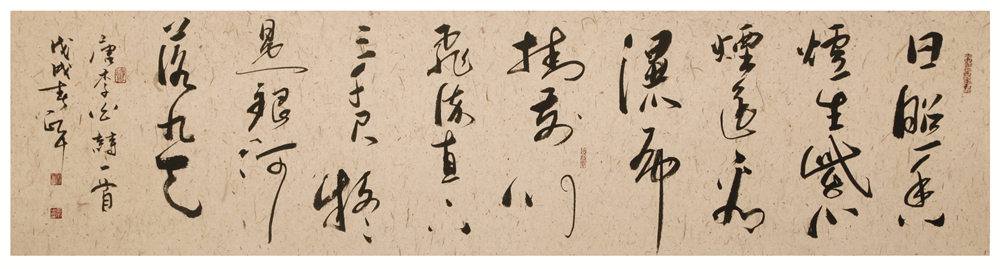 日照香
爐生紫
煙遥看
瀑布
挂前川
飛流直下
三千尺疑
是銀河
落九天
唐李白詩一首
戊戌春